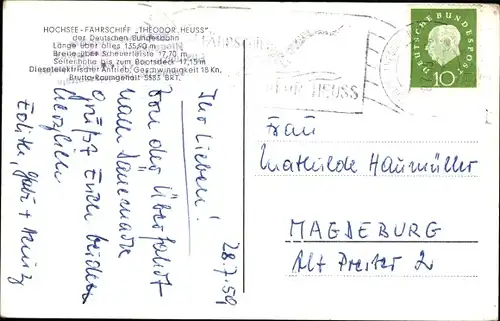 HOCHSEE-FAHRSCHIFF „THEODOR HEUSS"
der Deutschen Bundesbahn
Länge über alles 135,90 m
Breite über Scheuerleiste 17,70 m
Seitenhöhe bis zum Bootsdeck 17,15 m
Dieselelektrischer Antrieb, Geschwindigkeit 18 Kn.
Brutto-Raumgehalt 5583 BRT.
28.7.59
Ihr Lieben!
Von der Überfahrt
nach Dänemark
grüßt Euch beiden
herzlich
Edith, +
FÄHRSCHIFF
HEUSS
DEUTSCHE BUNDESPOST
10
Frau
Mathilde Haumüller
MAGDEBURG
Alt Prester 2